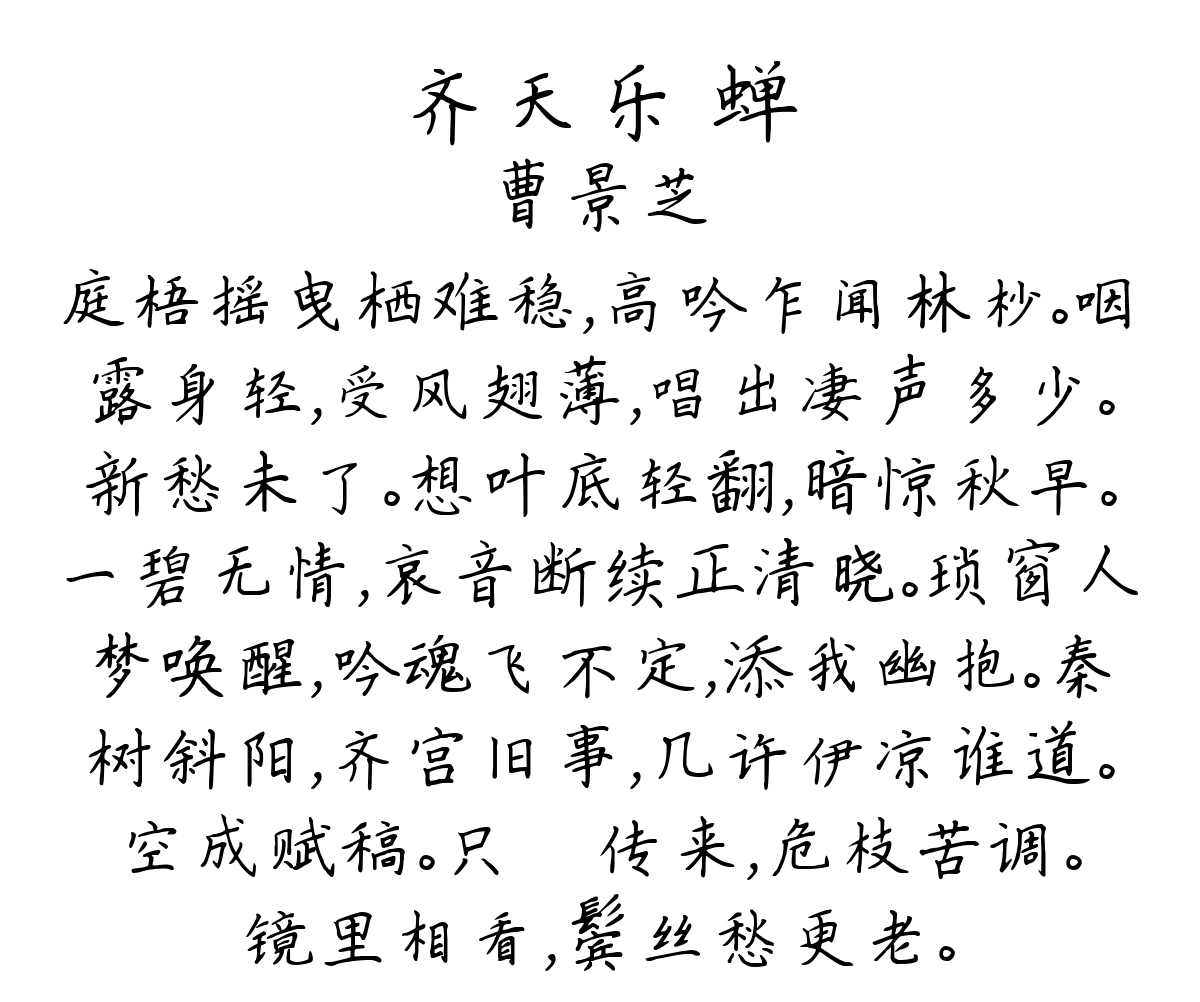 齐天乐 蝉
曹景芝
庭梧摇曳栖难稳,高吟乍闻林杪。咽
露身轻,受风翅薄,唱出凄声多少。
新愁未了。想叶底轻翻,暗惊秋早。
一碧无情,哀音断续正清晓。琐窗人
梦唤醒,吟魂飞不定,添我幽抱。秦
树斜阳,齐宫旧事,几许伊凉谁道。
空成赋稿。只 传来,危枝苦调。
镜里相看,鬓丝愁更老。